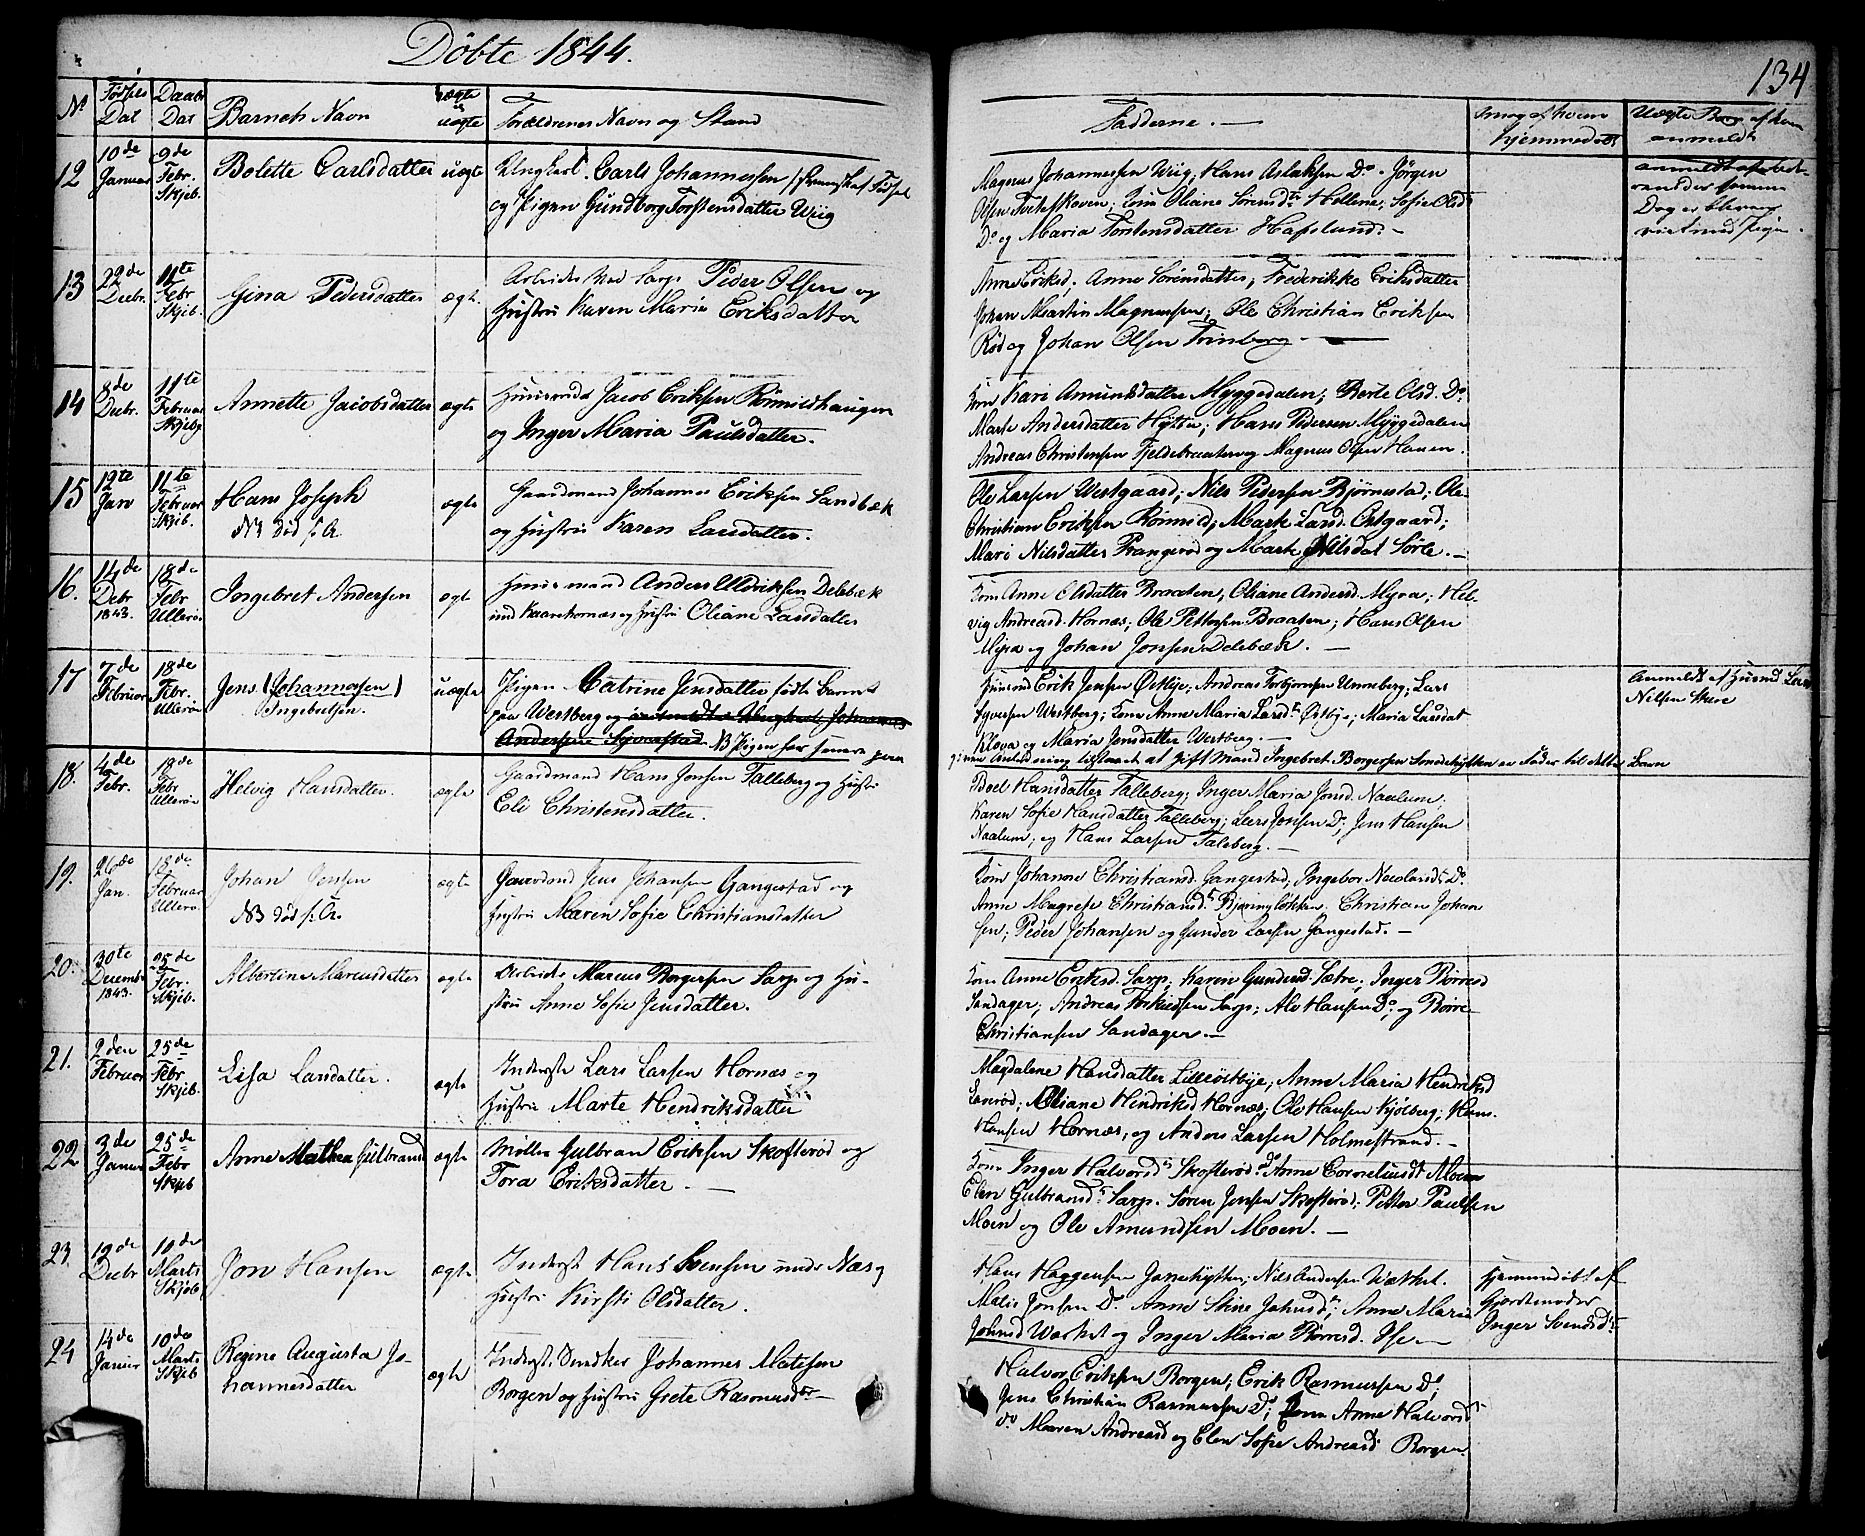 Döbte 1844.
134
No Fødsels Dat Daabs Dat Barnets Navn ægte uægte Forældrenes Navn og Stand
Fadderne. —
hvem hjemmedøbt
Uægte Børn af hvem anmeldt
12 10de Januar 9de Febr. Skjeb. Bolette Carlsdatter uægte Ungkarl Carls Johannessen / Svensk af Fødsel
og Pigen Gundborg Torstensdatter Wiig
Magnus Johannessen Wiig; Hans Aslaksen Do. Jörgen
Olsen Tvetaskoven; Kone Oliane Sörensdr Hellene; Sofie Olsd
Do og Maria Torstensdatter Hafslund. —
Dog er
viet med Pigen.
13 11te Febr Skjeb. Gina Pedersdatter ægte Arbeider ved Sarps Peder Olsen og
Hustru Karen Maria Eriksdatter
Anne Eriksd. Anne Sörensdatter; Frederikke Eriksdatter
Johan Martin Magnussen; Ole Christian Eriksen
Röd og Johan Olsen Trinborg —
14 8de Decbr. 11te Februar Skjeb Annette Jacobsdatter ægte Huusmd Jacob Eriksen Römildhaugen
og Inger Maria Paulsdatter.
Kone Kari Amundsdatter Myggedalen; Berte Olsd. Do
Marte Andersdatter Hytten; Hans Pedersen Myggedalen
Andreas Christensen Fjeldebraaten og Magnus Olsen Hauen.
15 12te Jan 11te Februar Skjeb. Hans Joseph ægte Gaardmand Johannes Eriksen Sandbæk
NB död f. Ør. og Hustru Karen Larsdatter.
Ole Larsen Westgaard; Nils Pedersen Bjørnestad; Ole
Christian Eriksen Römild; Marte Larsd. Ostgaard;
Mari Nilsdatter Prangerød og Marte Nilsdat Sorle. —
16. 14de Debr 1843. 18de Febr Ulleröi Ingebret Andersen ægte Huusmand Anders Uldriksen Delebæk
und Kaarehornæs og Hustru Oliane Larsdatter
Kone Anne Olsdatter Braaten; Oliane Andersd. Myra; Hel-
vig Andreasd. Hornæs; Ole Pettersen Braaten; Hans Olsen
Myra og Johan Jonsen Delebæk. —
17 7de Februar 18de Febr. Ulleröi Jens (Johannesen) uægte Pigen Catrine Jensdatter födte Barnet
Ingebretsen. paa Westberg og Ungkarl Johannes
Andersen NB Pigen har senere paa
given Anledning tilstaaet at gift Mand Ingebret Borgersen Smedehytten er Fader til dette Barn
Huusmd Erik Jensen Østbye; Andreas Torbjornsen Unneberg; Lars
Syversen Westberg; Kone Anne Maria Larsdr Østbye; Maria Larsdat
Klova og Maria Jensdatter Westberg. —
Anmeldt af Huusmd. Lars
Nilsen Skere
18. 4de Febr. 18de Febr Ulleröi Helvig Hansdatter. ægte Gaardmand Hans Jonsen Talleberg og Hustru
Eli Christensdatter.
Boel Hansdatter Talleberg; Inger Maria Jonsd. Naalum.
Karen Sofie Hansdatter Talleberg; Lars Jonsen Do; Jens Hansen
Naalum; og Hans Larsen Taleberg. —
19. 26de Jan. 18de Februar Ullerö. Johan Jensen ægte Gaardmd Jens Johansen Gangestad og
NB död f. Ør. Hustru Maren Sofie Christiansdatter
Kone Johanne Christiansd. Gangestad; Ingebor Nicolaisdr Do.
Anne Magrete Christiansdr Bjönnyløkken. Christian Johan
sen; Peder Johansen og Gunder Larsen Gangestad. —
20. 30te Decembr 1843. 25de Febr. Skjeb. Albertine Marcusdatter ægte Arbeids Marcus Borgersen Sarps og Hu-
stru Anne Sofie Jensdatter.
Kone Anne Eriksd. Sarps; Karen Gundersd. Sætre; Inger Börresd
Sandager; Andreas Sarps; Ole Hansen Do; og Börre
Christiansen Sandager. —
21. 2den Februar 25de Febr Skjeb. Lisa Larsdatter. ægte Inderst Lars Larsen Hornæs og
Hustru Marte Hendriksdatter
Magdalene Hansdatter Lilleöstbye; Anne Maria Hendriksd
Oliane Hendriksd Hornæs; Ole Hansen Kjölberg; Hans
Hansen Hornæs; og Anders Larsen Holmestrand. —
22 3de Januar 25de Febr Skjeb Anne Mathea Gulbrandsd ægte Möller Gulbran Eriksen Skofteröd og
Tora Eriksdatter. —
Kone Inger Halvorsdr Skofteröd. do Anne Corneliusdr Moen
Elen Gulbransdr Sarps. Sören Jensen Skofteröd; Petter Paulsen
Moen og Ole Amundsen Moen. —
23. 19de Decbr 10de Marts Skjeb. Jon Hansen ægte Inderst Hans Svensen under Næs og
Hustru Kirsti Olsdatter.
Hans Haggensen Janehytten; Nils Andersen Wæthel.
Malis Jonsen Do. Anne Stine Johnsdr; Anne Maria
Johnsd Wartet og Inger Maria Börresd. Ise —
Hjemmedöbt af
Gjordemoder
Inger Svendsdr
24 14de Januar 10de Marts Skjeb Regine Augusta Jo-
hannesdatter ægte Inderst Snedker Johannes Matisen
Borgen og Hustru Grete Rasmusdtr —
Halvor Eriksen Borgen; Erik Rasmussen Do;
Jens Christian Rasmussen Do; Kone Anne Halvorsdr
do Maren Andreasd og Elen Sofie Andreasd Borgen.